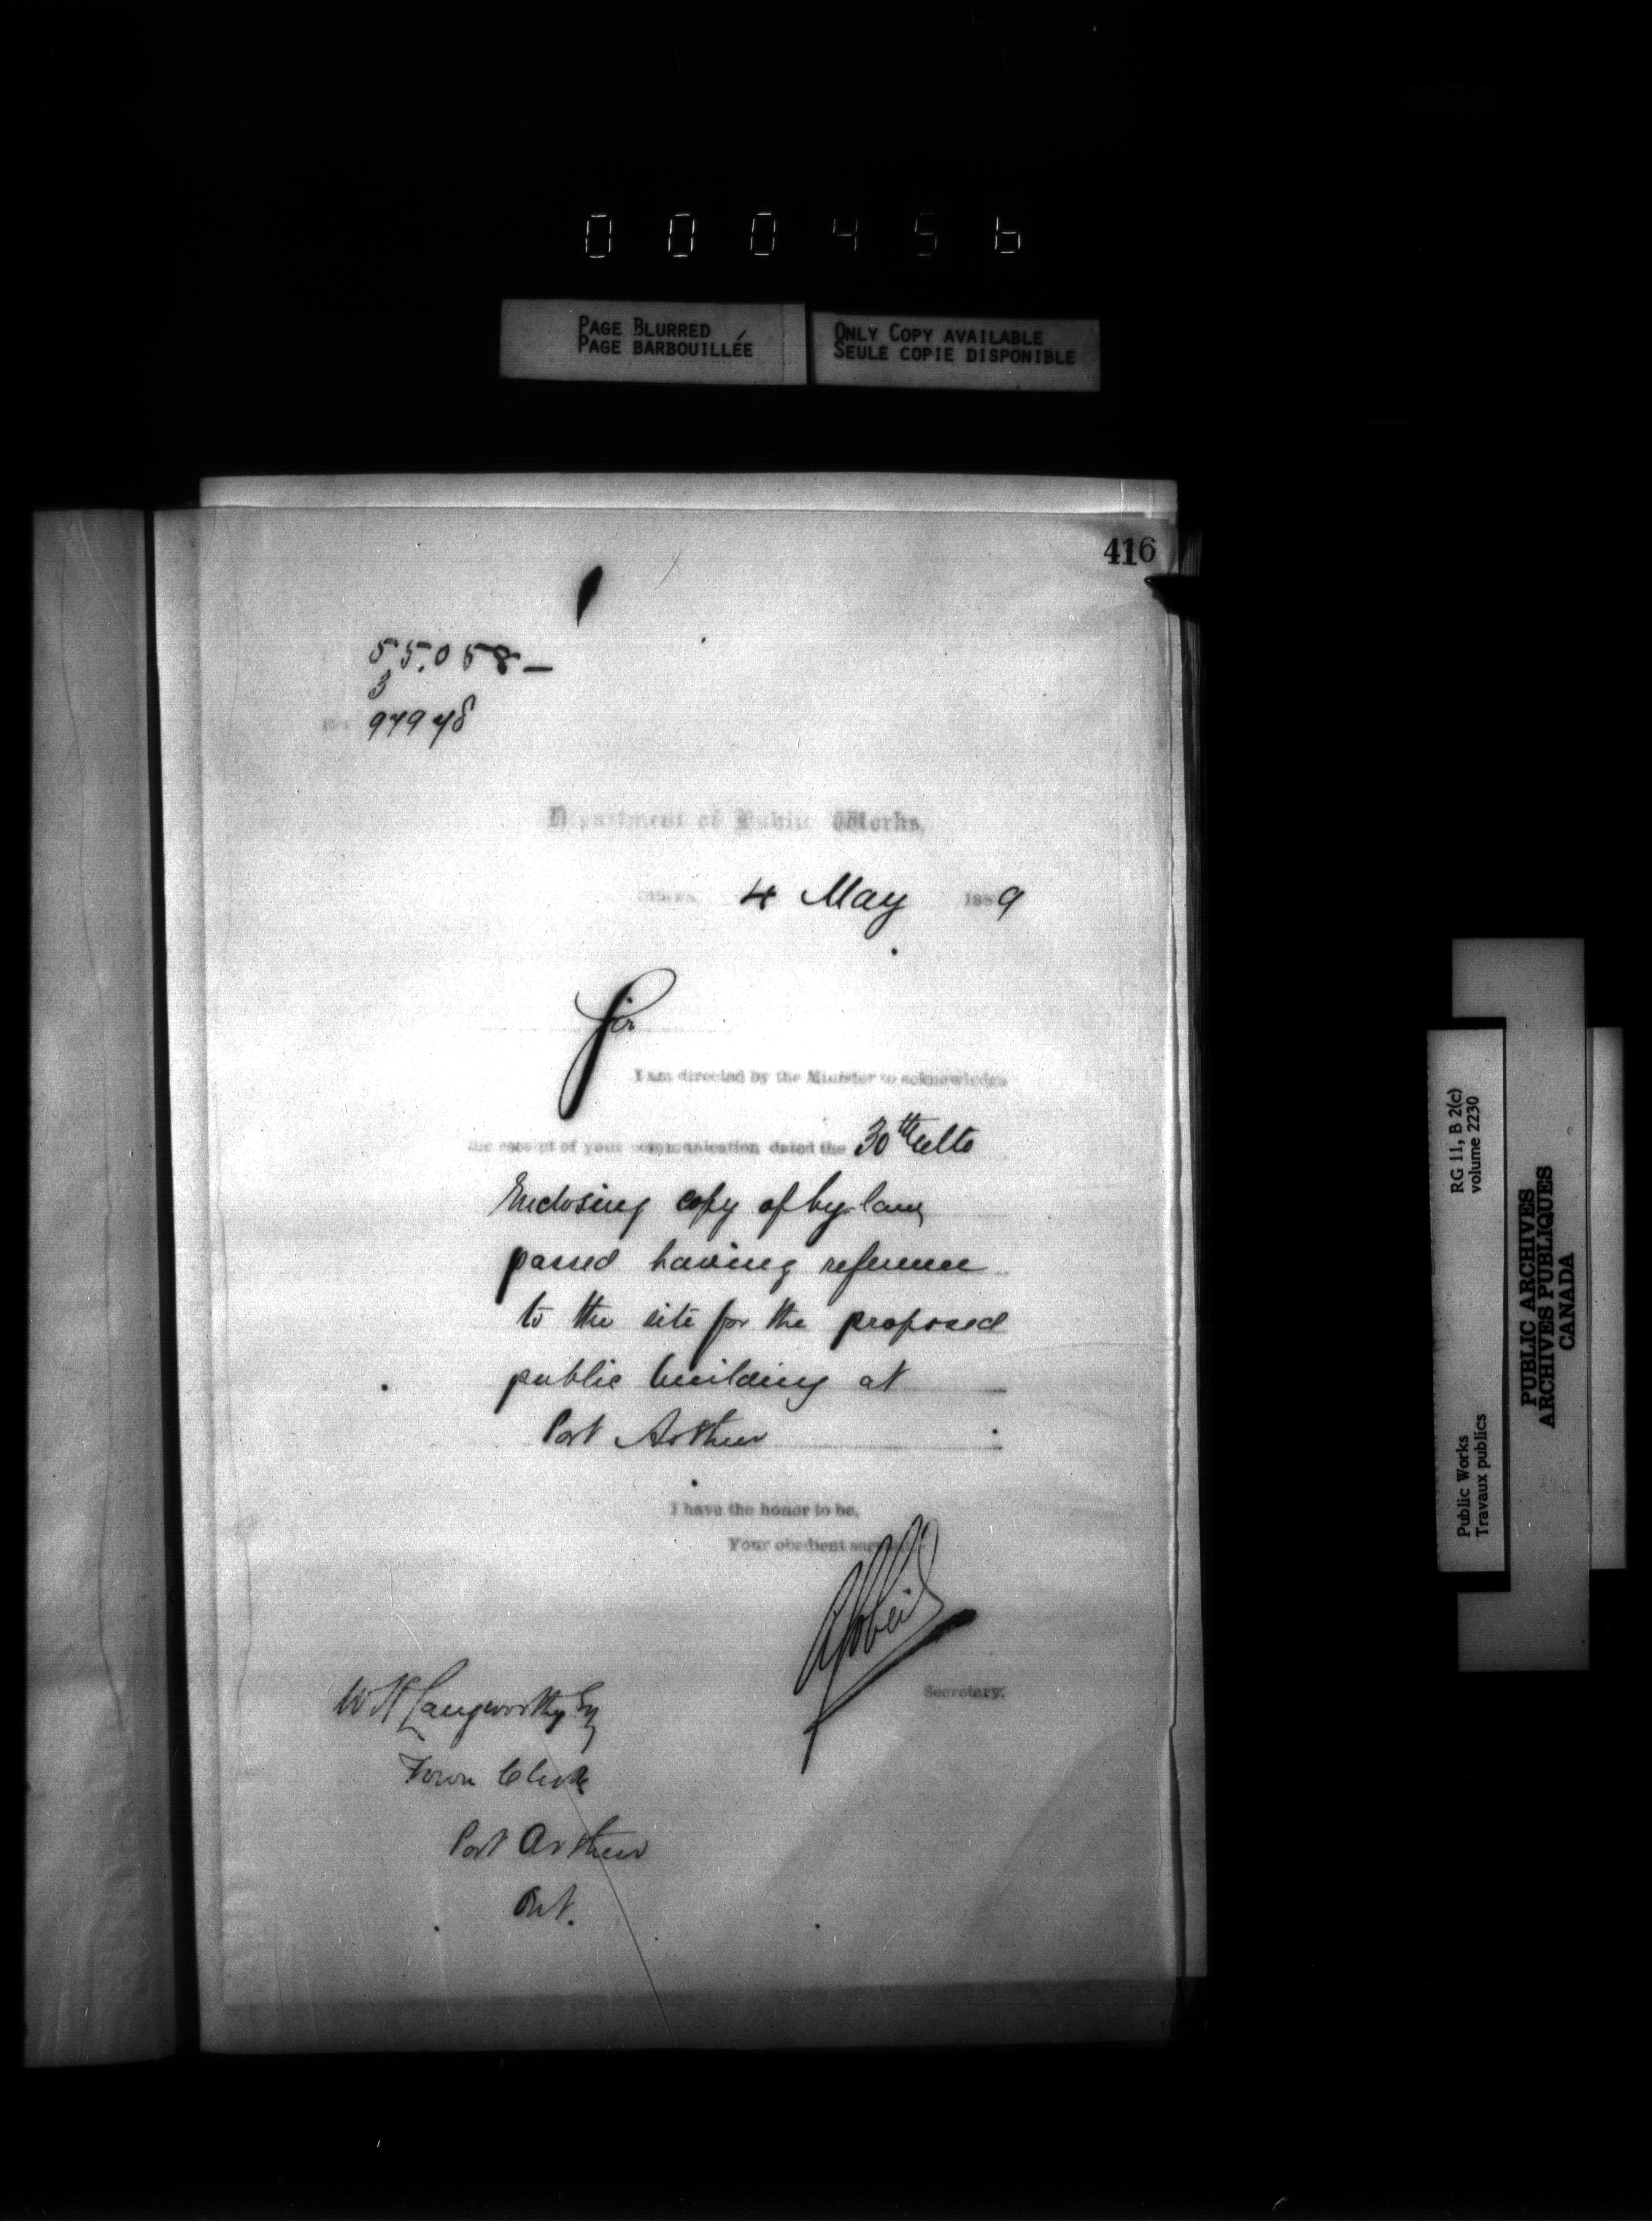 000456
PAGE BLURRED
PAGE BARBOUILLÉE
ONLY COPY AVAILABLE
SEULE COPIE DISPONIBLE
416
55.058-
3
Department of Public Works,
Ottawa 4 May 1889
Sir
I am directed by the Minister to acknowledge
the receipt of your communication dated the 30th ulto
Enclosing copy of by-law
passed having reference
to the site for the proposed
public building at
Port Arthur
I have the honor to be,
Your obedient servant,
Secretary.
W H Langworthy Esq
Town Clerk
Port Arthur
Ont.
RG 11, B 2(c)
volume 2230
Public Works
Travaux publics
PUBLIC ARCHIVES
ARCHIVES PUBLIQUES
CANADA